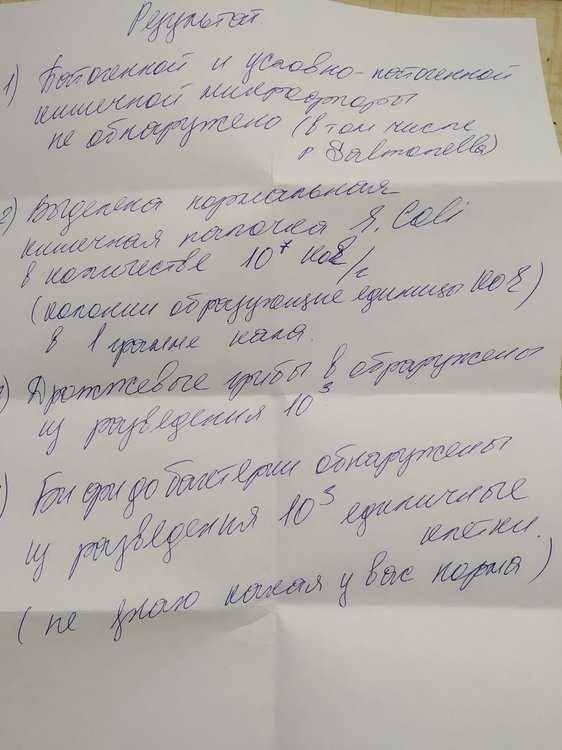 Результат
1) Патогенной и условно-патогенной
кишечной микрофлоры
не обнаружено (в том числе
р. Salmonella)
2) Выделена нормальная
кишечная палочка E. Coli
в количестве 10⁷ КоЕ/г
(колонии образующие единицы КоЕ)
в 1 грамме кала.
) Дрожжевые грибы обнаружены
из разведения 10³
) Бифидобактерии обнаружены
из разведения 10⁵ единичные
клетки.
(не знаю какая у вас норма)